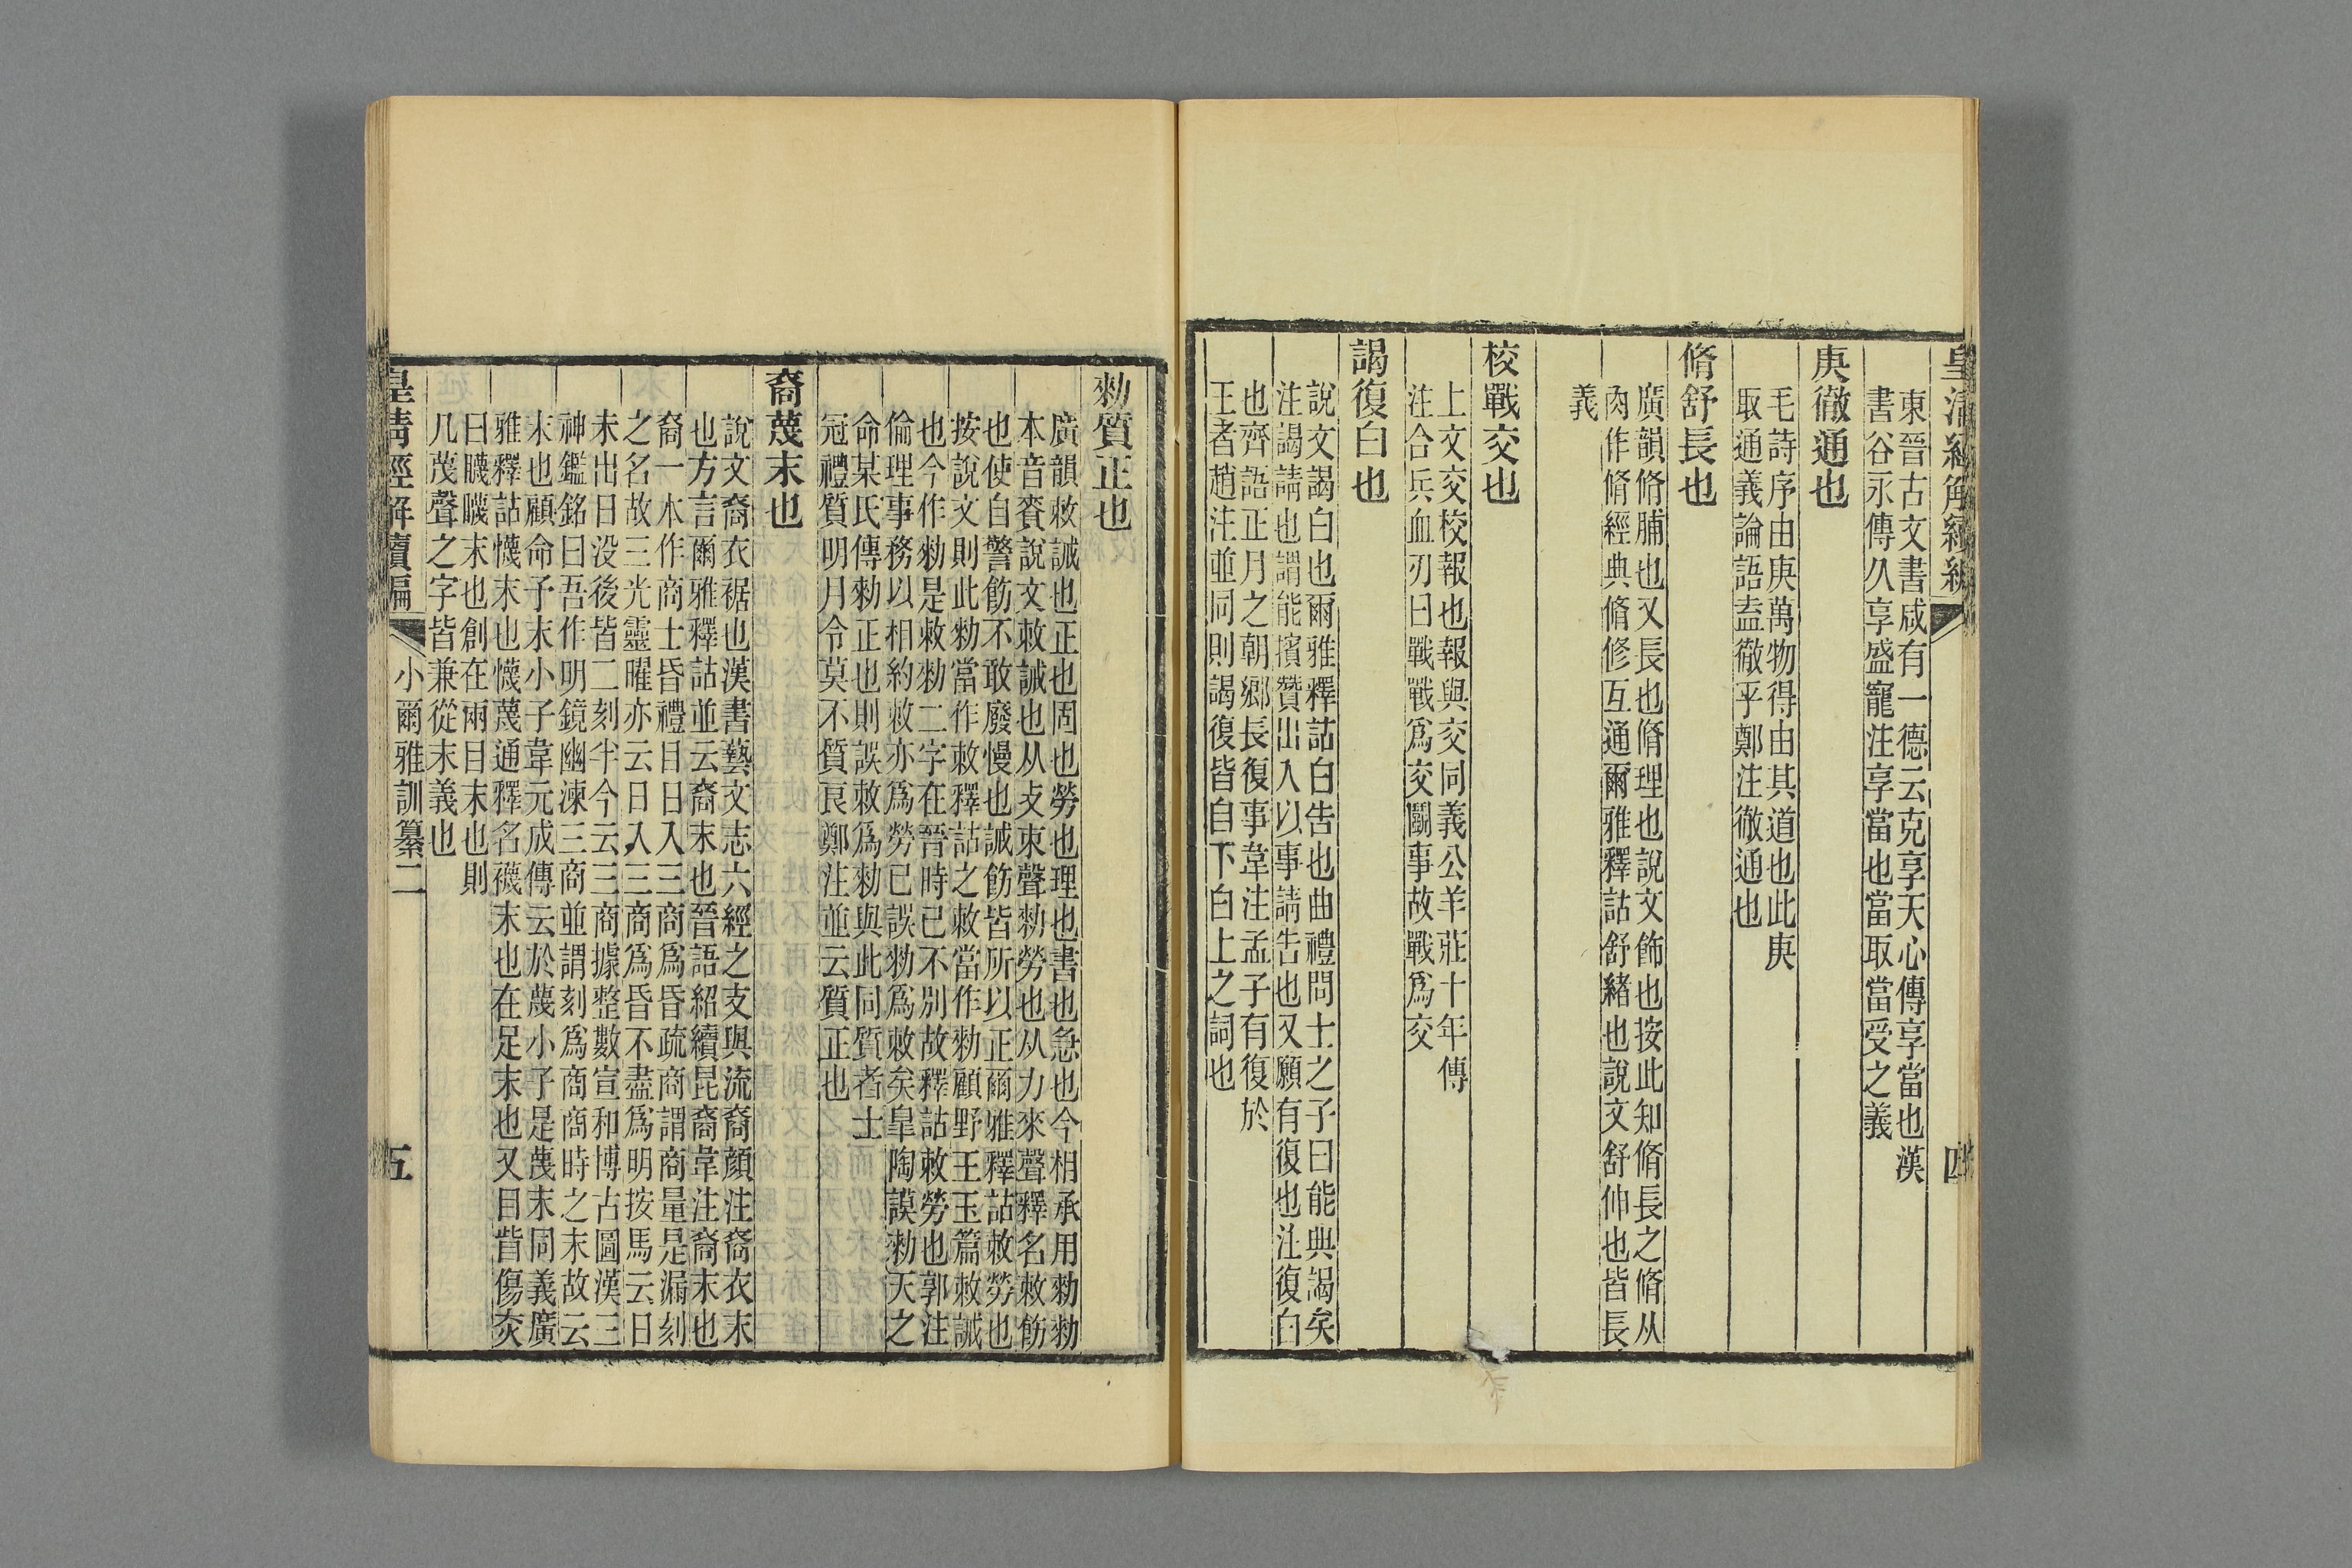 皇清經解續編
四
東晉古文書咸有一德云克享天心傳享當也漢
書谷永傳久享盛寵注享當也當取當受之義
庚徹通也
毛詩序由庚萬物得由其道也此庚
取通義論語盍徹乎鄭注徹通也
脩舒長也
廣韻脩脯也又長也脩理也說文飾也按此知脩長之脩从
肉作脩經典脩修互通爾雅釋詁舒緒也說文舒伸也皆長
義
校戰交也
上文交校報也報與交同義公羊莊十年傳
注合兵血刃曰戰戰爲交鬭事故戰爲交
謁復白也
說文謁白也爾雅釋詁白告也曲禮問士之子曰能典謁矣
注謁請也謂能擯贊出入以事請告也又願有復也注復白
也齊語正月之朝鄉長復事韋注孟子有復於
王者趙注並同則謁復皆自下白上之詞也
勑質正也
廣韻敕誡也正也固也勞也理也書也急也今相承用勑勑
本音賚說文敕誡也从攴束聲勑勞也从力來聲釋名敕飭
也使自警飭不敢廢慢也誡飭皆所以正爾雅釋詁敕勞也
按說文則此勑當作敕釋詁之敕當作勑顧野王玉篇敕誡
也今作勑是敕勑二字在晉時已不別故釋詁敕勞也郭注
倫理事務以相約敕亦爲勞已誤勑爲敕矣皐陶謨勑天之
命某氏傳勑正也則誤敕爲勑與此同質者士
冠禮質明月令莫不質良鄭注並云質正也
裔蔑末也
說文裔衣裾也漢書藝文志六經之支與流裔顏注裔衣末
也方言爾雅釋詁並云裔末也晉語紹續昆裔韋注裔末也
裔一本作商士昏禮目日入三商爲昏疏商謂商量是漏刻
之名故三光靈曜亦云日入三商爲昏不盡爲明按馬云日
未出日没後皆二刻半今云三商據整數宣和博古圖漢三
神鑑銘曰吾作明鏡幽湅三商並謂刻爲商商時之末故云
末也顧命予末小子韋元成傳云於蔑小子是蔑末同義廣
雅釋詁懱末也懱蔑通釋名襪末也在足末也又目眥傷赤
曰䁾䁾末也創在兩目末也則
凡蔑聲之字皆兼從末義也
皇清經解續編
小爾雅訓纂二
五